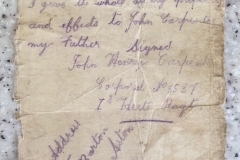 I give the whole of my property
and effects to John Carpenter
my Father Signed
John Carpenter
Corporal No 8537
1st Herts Regt
Address
Barton